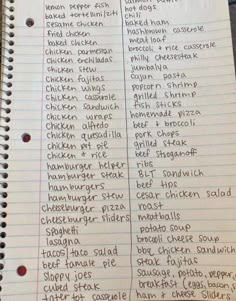 lemon pepper fish
baked tortellini/ziti
sesame chicken
fried chicken
baked chicken
chicken parmesan
chicken enchiladas
chicken stew
chicken fajitas
chicken wings
chicken casserole
chicken sandwich
chicken wraps
chicken alfredo
chicken quesadilla
chicken pot pie
chicken + rice
hamburger helper
hamburger steak
hamburgers
hamburger stew
cheeseburger pizza
cheeseburger sliders
spaghetti
lasagna
tacos/taco salad
beef tamale pie
sloppy joes
cubed steak
tatertot casserole
hot dogs
chili
baked ham
hashbrown casserole
meatloaf
broccoli + rice casserole
philly cheesesteak
jambalya
cajun pasta
popcorn shrimp
grilled shrimp
fish sticks
homemade pizza
beef + broccoli
pork chops
grilled steak
beef stroganoff
ribs
BLT sandwich
beef tips
cesar chicken salad
roast
meatballs
potato soup
brocolli cheese soup
bbq chicken sandwich
steak fajitas
sausage, potato, pepper,
breakfast (eggs, bacon,
ham & cheese sliders